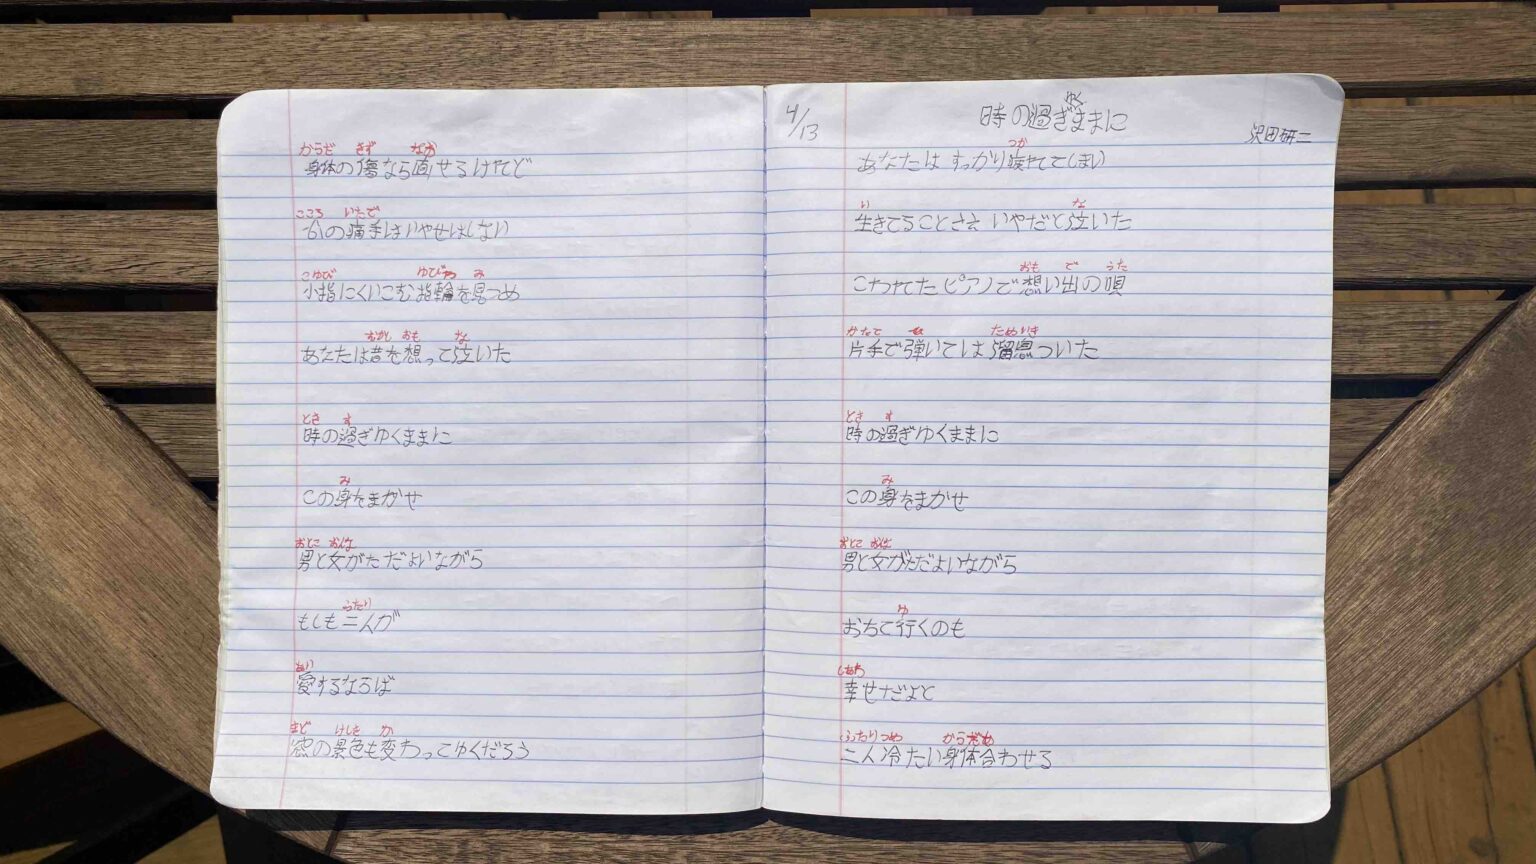 からだ きず なお
身体の傷なら直せるけれど
こころ いたで
心の痛手はいやせはしない
こゆび ゆびわ み
小指にくいこむ指輪を見つめ
むかし おも な
あなたは昔を想って泣いた
とき す
時の過ぎゆくままに
み
この身をまかせ
おとこ おんな
男と女がただよいながら
ふたり
もしも二人が
あい
愛するならば
まど けしき か
窓の景色も変わってゆくだろう
4/13
ゆく
時の過ぎままに
沢田研二
つか
あなたは すっかり疲れてしまい
い な
生きてることさえ いやだと泣いた
おも で うた
こわれたピアノで想い出の唄
かたて ひ ためいき
片手で弾いては溜息ついた
とき す
時の過ぎゆくままに
み
この身をまかせ
おとこ おんな
男と女がただよいながら
ゆ
おちて行くのも
しあわ
幸せだよと
ふたりつめ からだあ
二人冷たい身体合わせる